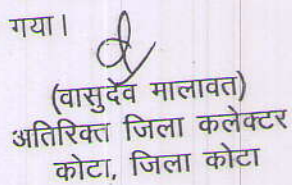 गया।
(वासुदेव मालावत)
अतिरिक्त जिला कलेक्टर
कोटा, जिला कोटा